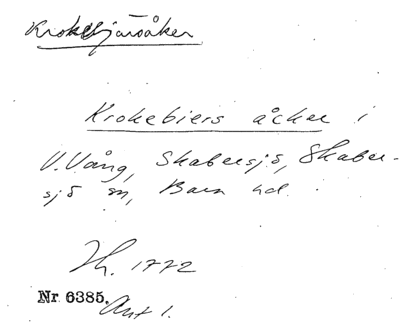 Krokebjärsåker
Krokebiers åcker i
V. Vång, Skabersjö, Skaber-
sjö sn, Bara hd.
Th. 1772
Nr 6385. Ant 1.